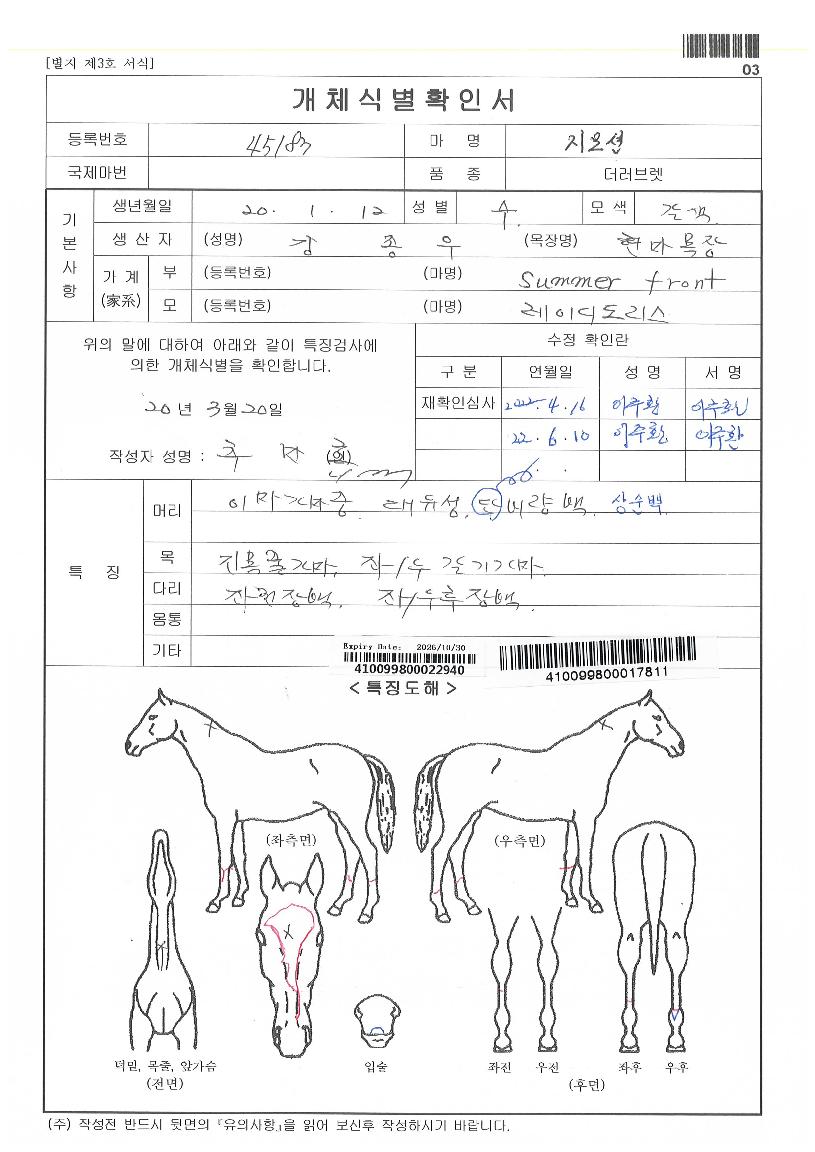 [별지 제3호 서식]
03
개체식별확인서
등록번호 45183 마 명 지오션
국제마번 품 종 더러브렛
기본사항
생년월일 20. 1. 12 성별 수 모색 갈색
생산자 (성명) 강 종 우 (목장명) 현마목장
가계 (家系) 부 (등록번호) (마명) Summer front
모 (등록번호) (마명) 레이디도리스
위의 말에 대하여 아래와 같이 특징검사에
의한 개체식별을 확인합니다.
20년 3월 20일
작성자 성명 : (인)
수정 확인란
구 분 연월일 성 명 서 명
재확인심사 2022. 4. 16 이주환 이주환
22. 6. 10 이주환 이주환
특 징
머리 이마가마중 대유성 비량백 상순백
목
다리
몸통
기타
Expiry Date: 2026/10/30
410099800022940
410099800017811
< 특징도해 >
(좌측면) (우측면)
턱밑, 목줄, 앞가슴
(전면)
입술
좌전 우전 좌후 우후
(후면)
(주) 작성전 반드시 뒷면의 『유의사항』을 읽어 보신후 작성하시기 바랍니다.